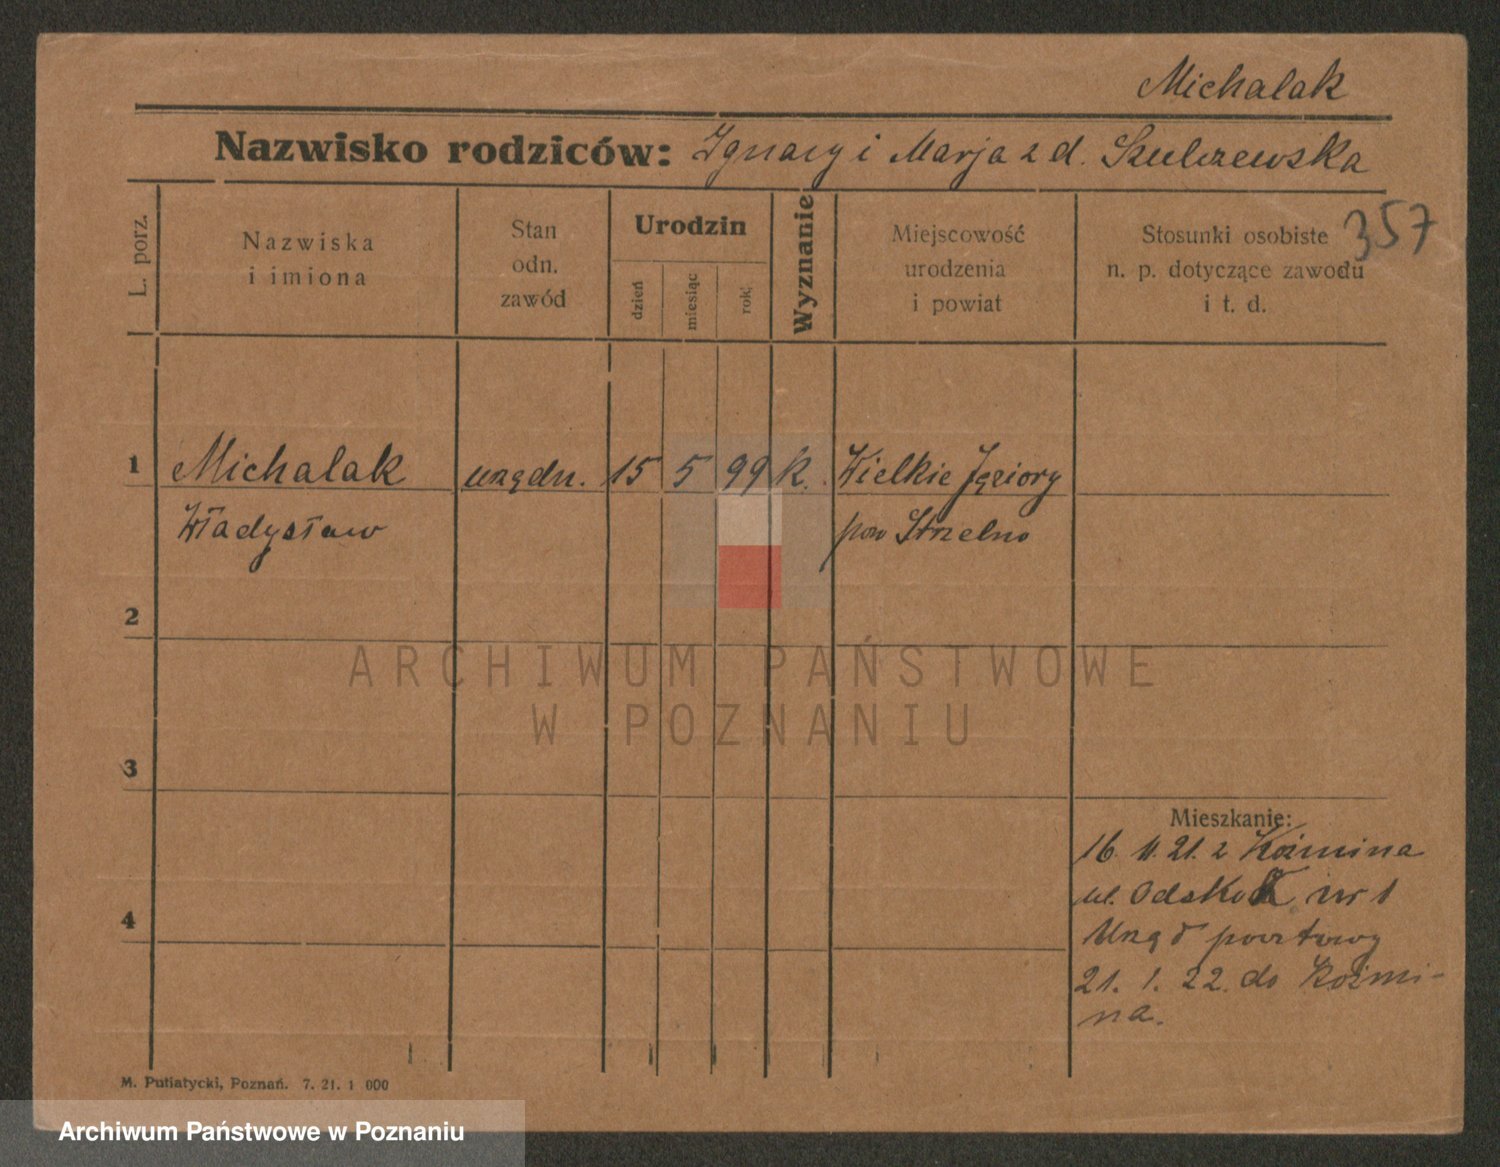 Michalak
Nazwisko rodziców: Ignacy i Marja z d. Szulczewska
357
L. porz.
Nazwiska
i imiona
Stan
odn.
zawód
Urodzin
dzień
miesiąc
rok
Wyznanie
Miejscowość
urodzenia
i powiat
Stosunki osobiste
n. p. dotyczące zawodu
i t. d.
1 Michalak urzędn. 15 5 99 k. Wielkie Jeziory
Władysław pow Strzelno
2
3
4
Mieszkanie:
16. 11. 21. z Koźmina
ul. nr 1
Urząd pocztowy
21. 1. 22. do Koźmi-
na.
M. Putiatycki, Poznań. 7. 21. 1 000
ARCHIWUM PAŃSTWOWE
W POZNANIU
Archiwum Państwowe w Poznaniu